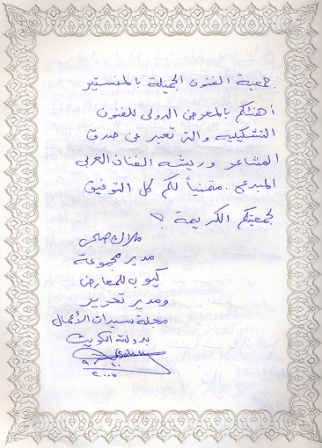 جمعية الفنون الجميلة بالمنستير
أهنئكم بالمعرض الدولي للفنون
التشكيلية والتي تعبر عن صدق
المشاعر وريشة الفنان العربي
المبدع. متمنياً لكم كل التوفيق
لجمعيتكم الكريمة
ملاك
مدير مجموعة
كيوب للمعارض
ومدير تحرير
مجلة سيدات الأعمال
بدولة الكويت
٢٠٠٥